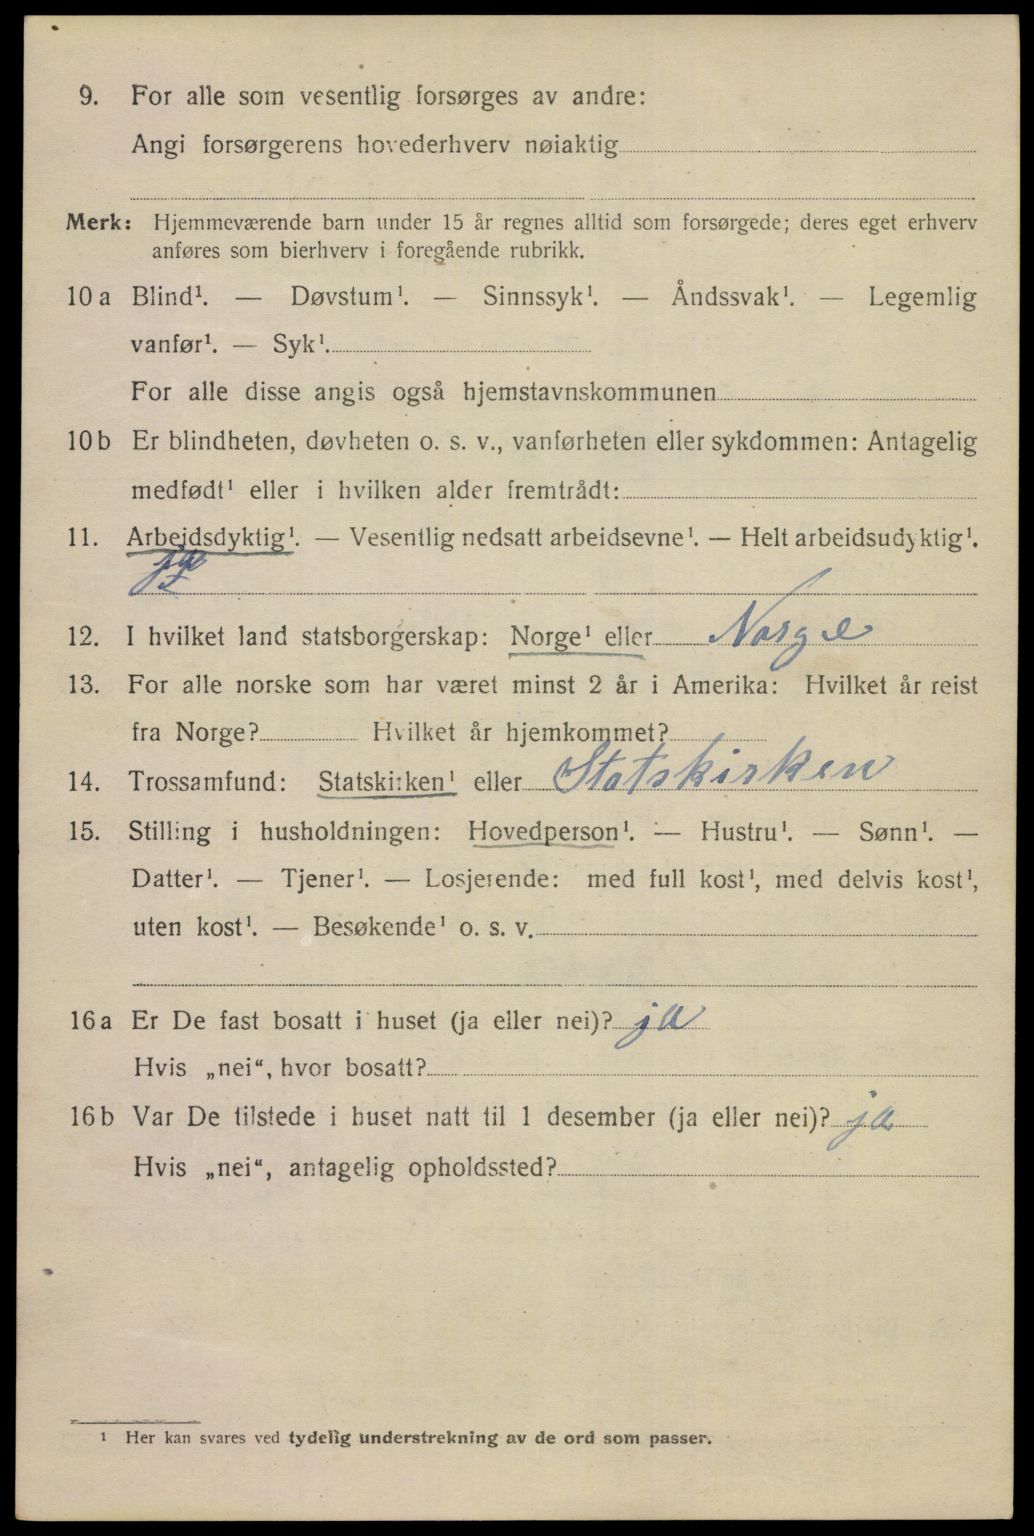 9. For alle som vesentlig forsørges av andre:
Angi forsørgerens hovederhverv nøiaktig
Merk: Hjemmeværende barn under 15 år regnes alltid som forsørgede; deres eget erhverv
anføres som bierhverv i foregående rubrikk.
10 a Blind¹. — Døvstum¹. — Sinnssyk¹. — Åndssvak¹. — Legemlig
vanfør¹. — Syk¹.
For alle disse angis også hjemstavnskommunen
10 b Er blindheten, døvheten o. s. v., vanførheten eller sykdommen: Antagelig
medfødt¹ eller i hvilken alder fremtrådt:
11. Arbeidsdyktig¹. — Vesentlig nedsatt arbeidsevne¹. — Helt arbeidsudyktig¹.
12. I hvilket land statsborgerskap: Norge¹ eller Norge
13. For alle norske som har været minst 2 år i Amerika: Hvilket år reist
fra Norge? Hvilket år hjemkommet?
14. Trossamfund: Statskirken¹ eller Statskirken
15. Stilling i husholdningen: Hovedperson¹. — Hustru¹. — Sønn¹. —
Datter¹. — Tjener¹. — Losjerende: med full kost¹, med delvis kost¹,
uten kost¹. — Besøkende¹ o. s. v.
16 a Er De fast bosatt i huset (ja eller nei)? ja
Hvis „nei“, hvor bosatt?
16 b Var De tilstede i huset natt til 1 desember (ja eller nei)? ja
Hvis „nei“, antagelig opholdssted?
¹ Her kan svares ved tydelig understrekning av de ord som passer.